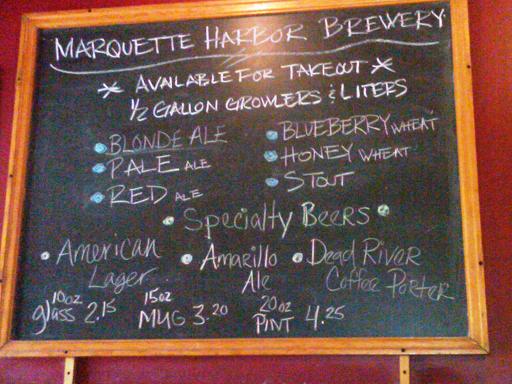 MARQUETTE HARBOR BREWERY
* AVAILABLE FOR TAKEOUT *
1/2 GALLON GROWLERS & LITERS
• BLONDE ALE • BLUEBERRY WHEAT
• PALE ALE • HONEY WHEAT
• RED ALE • STOUT
• Specialty Beers •
• American Lager • Amarillo Ale • Dead River Coffee Porter
10oz glass 2.15 15oz MUG 3.20 20oz PINT 4.25